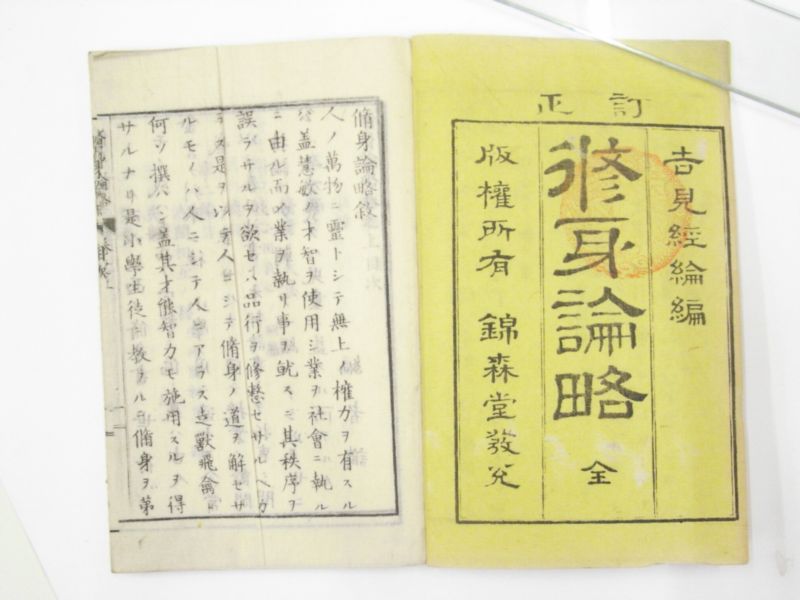 訂正
吉見經綸編
修身論略 全
版權所有 錦森堂發兌
脩身論略敘
人ノ萬物ニ靈トシテ無上ノ權力ヲ有スル
ハ蓋慧敏ノ才智ヲ使用シ業ヲ社會ニ執ル
ニ由ル而〆業ヲ執リ事ヲ就スニ其秩序ヲ
誤ラサルヲ欲セス品行ヲ修整セサルヘカ
ラス是ヲ以テ人ニシテ脩身ノ道ヲ解セサ
ルモノハ人ニシテ人ニアラス走獸飛禽
何ソ撰ハン蓋其才能智力モ施用スルヲ得
サルナリ是小學生徒ニ教フルヲ脩身ヲ第